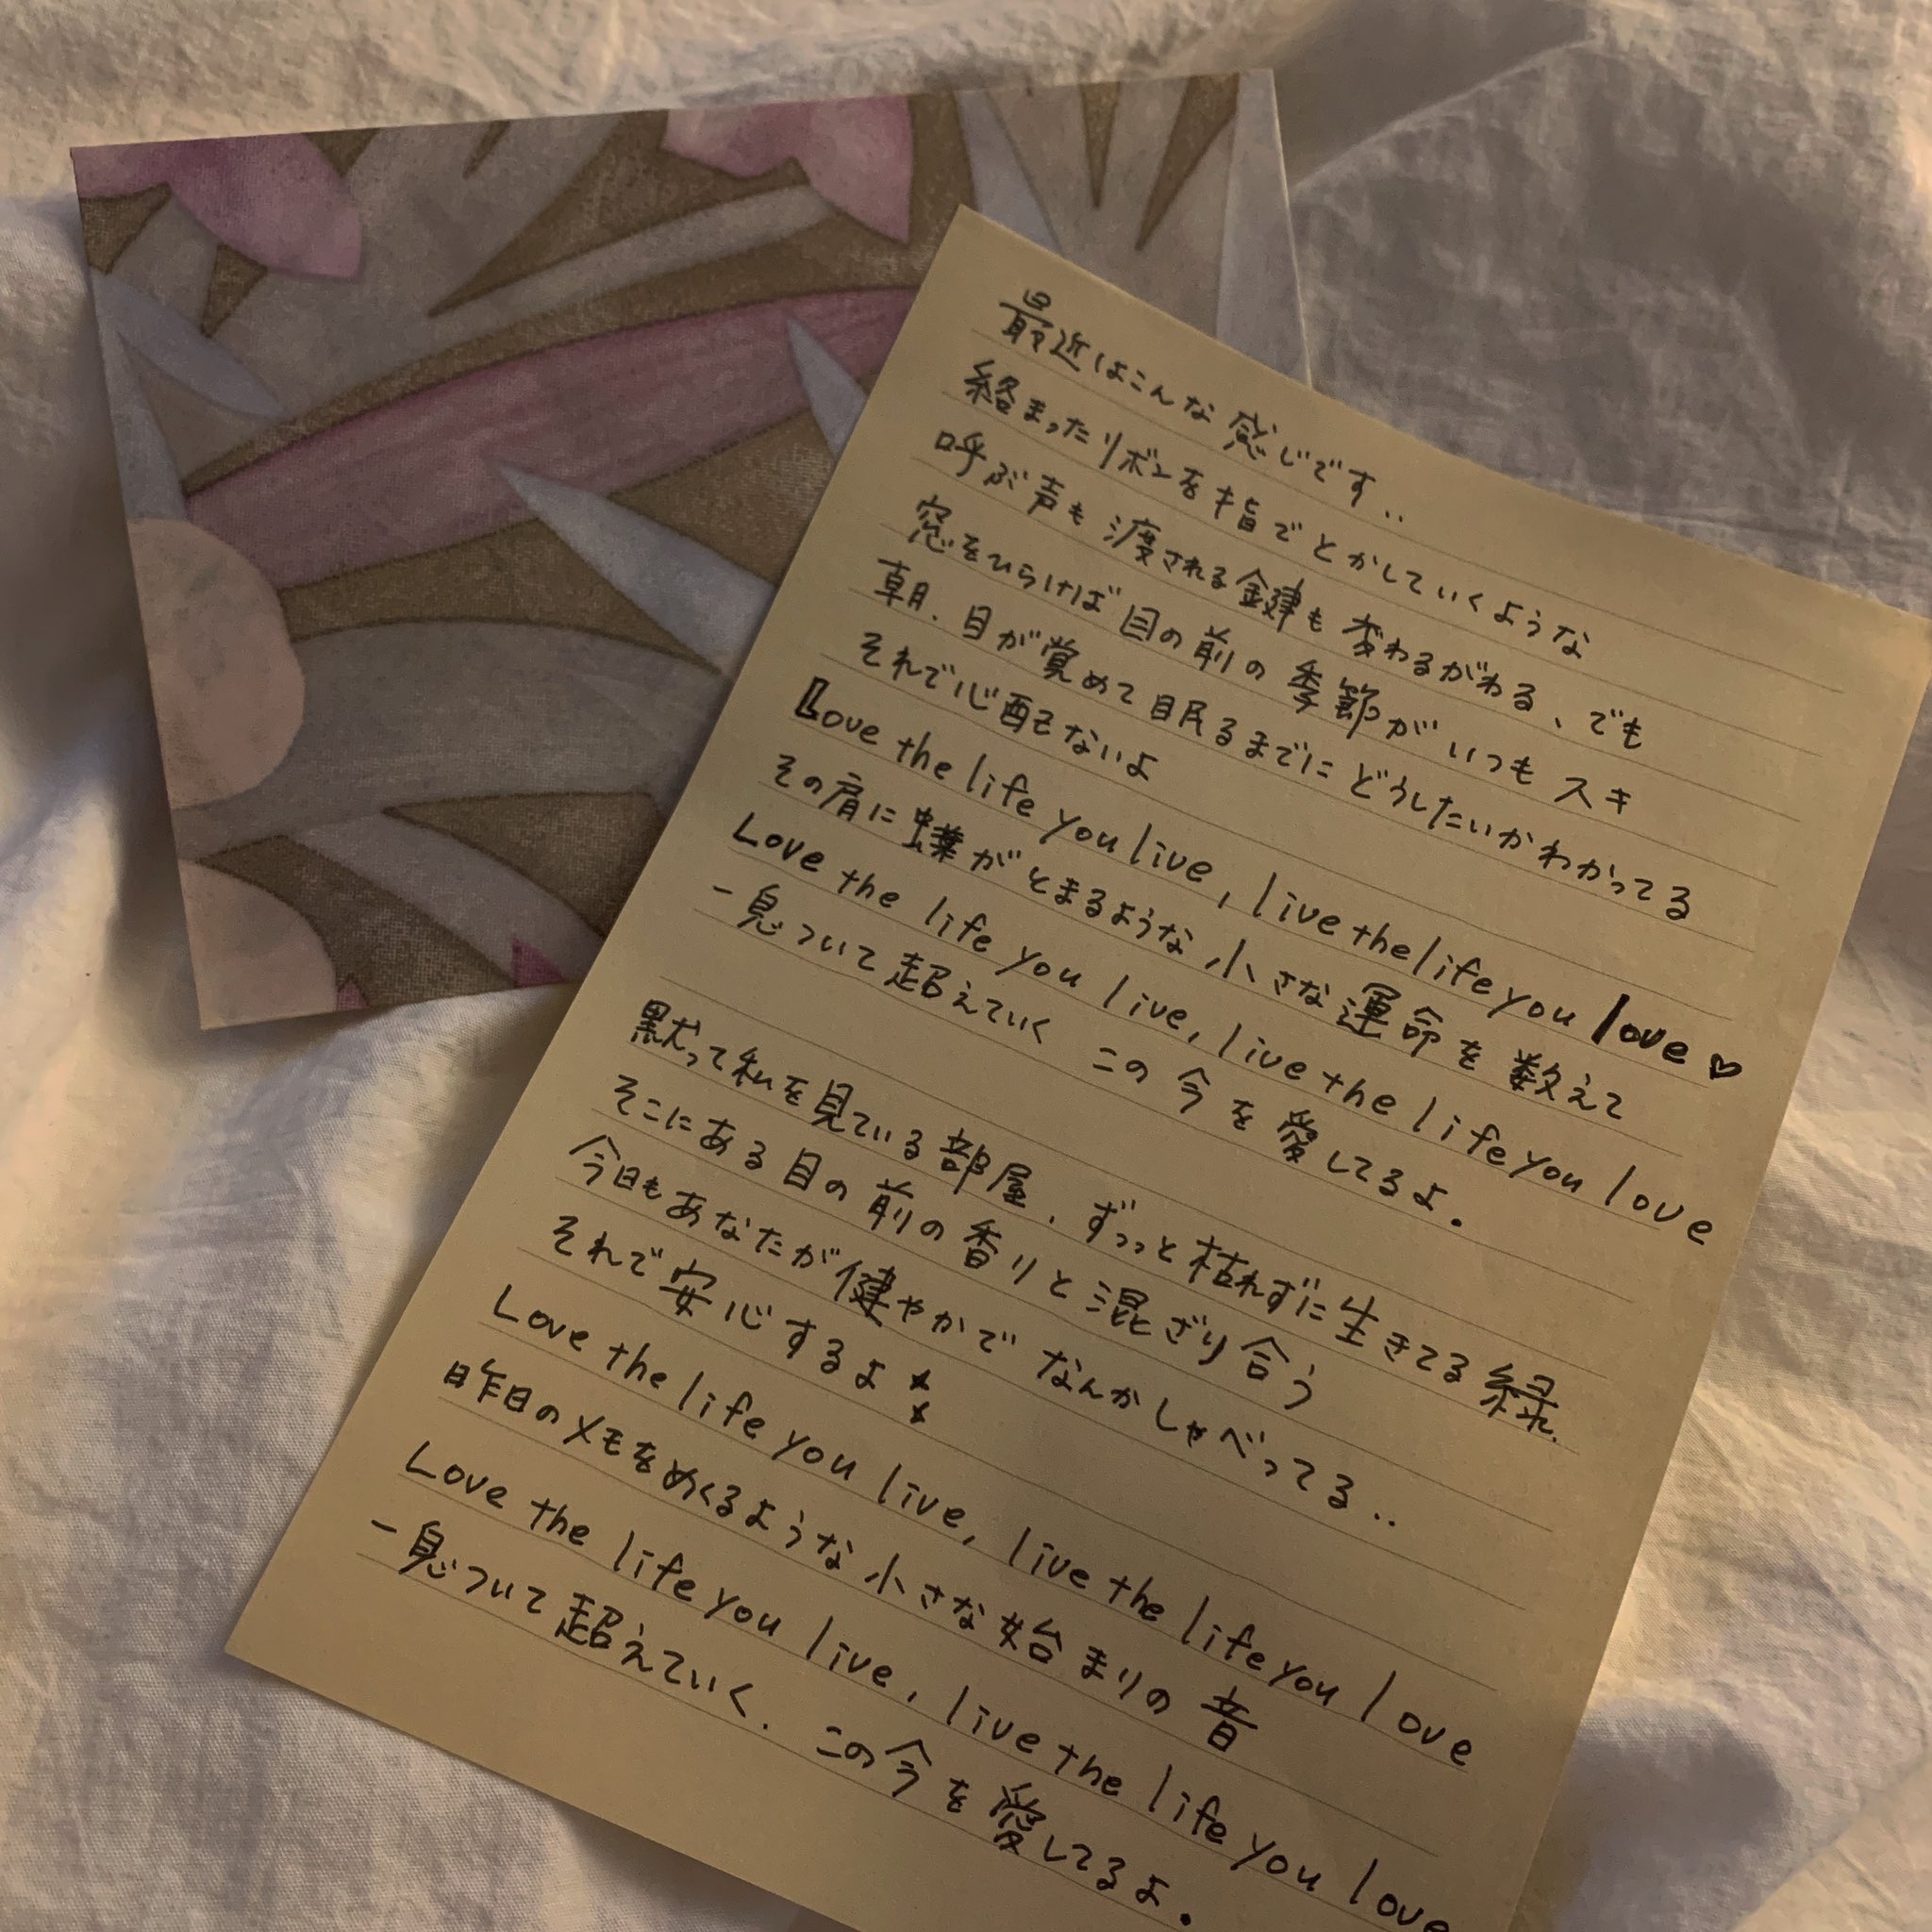 最近はこんな感じです..
絡まったリボンを指でとかしていくような
呼ぶ声も渡される鍵も変わるがわる、でも
窓をひらけば目の前の季節がいつもスキ
朝、目が覚めて眠るまでにどうしたいかわかってる
それで心配ないよ
Love the life you live, live the life you love♡
その肩に蝶がとまるような小さな運命を数えて
Love the life you live, live the life you love
一息ついて超えていく この今を愛してるよ。
黙って私を見ている部屋、ずっっと枯れずに生きてる緑、
そこにある目の前の香りと混ざり合う
今日もあなたが健やかでなんかしゃべってる..
それで安心するよ
Love the life you live, live the life you love
昨日のメモをめくるような小さな始まりの音
Love the life you live, live the life you love
一息ついて超えていく. この今を愛してるよ。